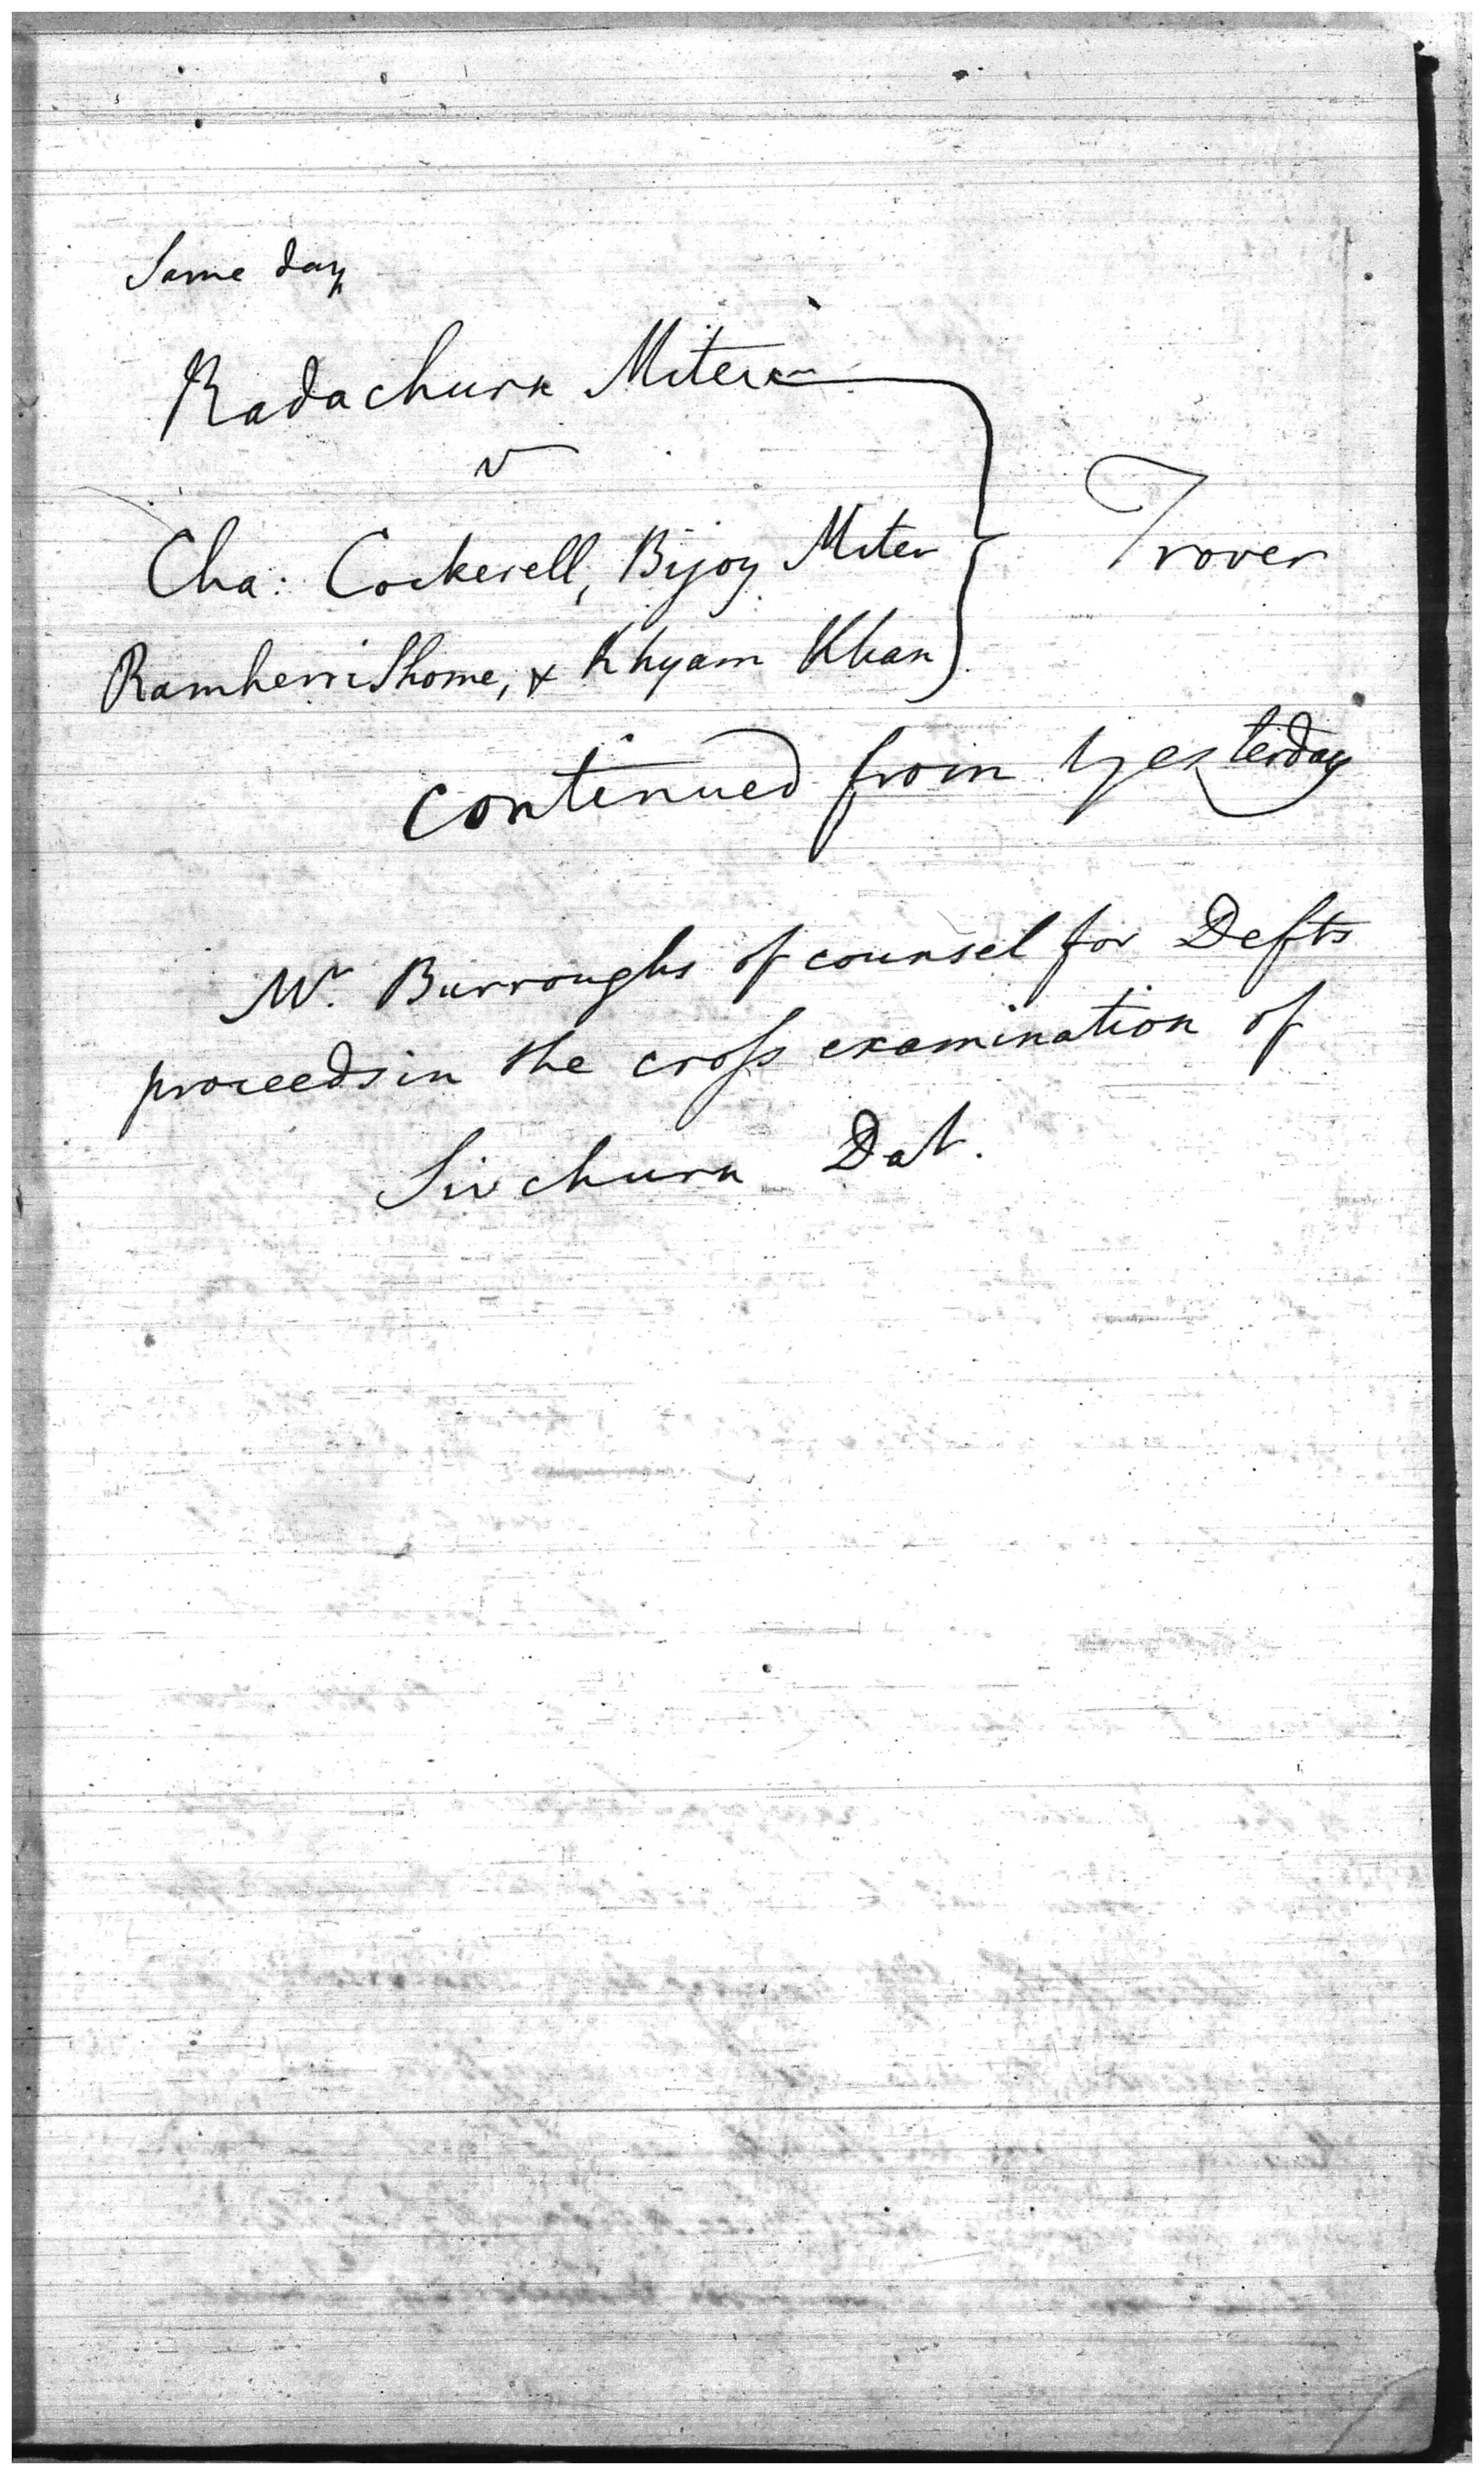 Same day
Radachurn Miter
v
Cha: Cockerell, Bijoy Miter
Ramherri Shome, & Khyam Khan
Trover
continued from yesterday
Mr. Burroughs of counsel for Defts
proceeds in the cross examination of
Sivchurn Dat.